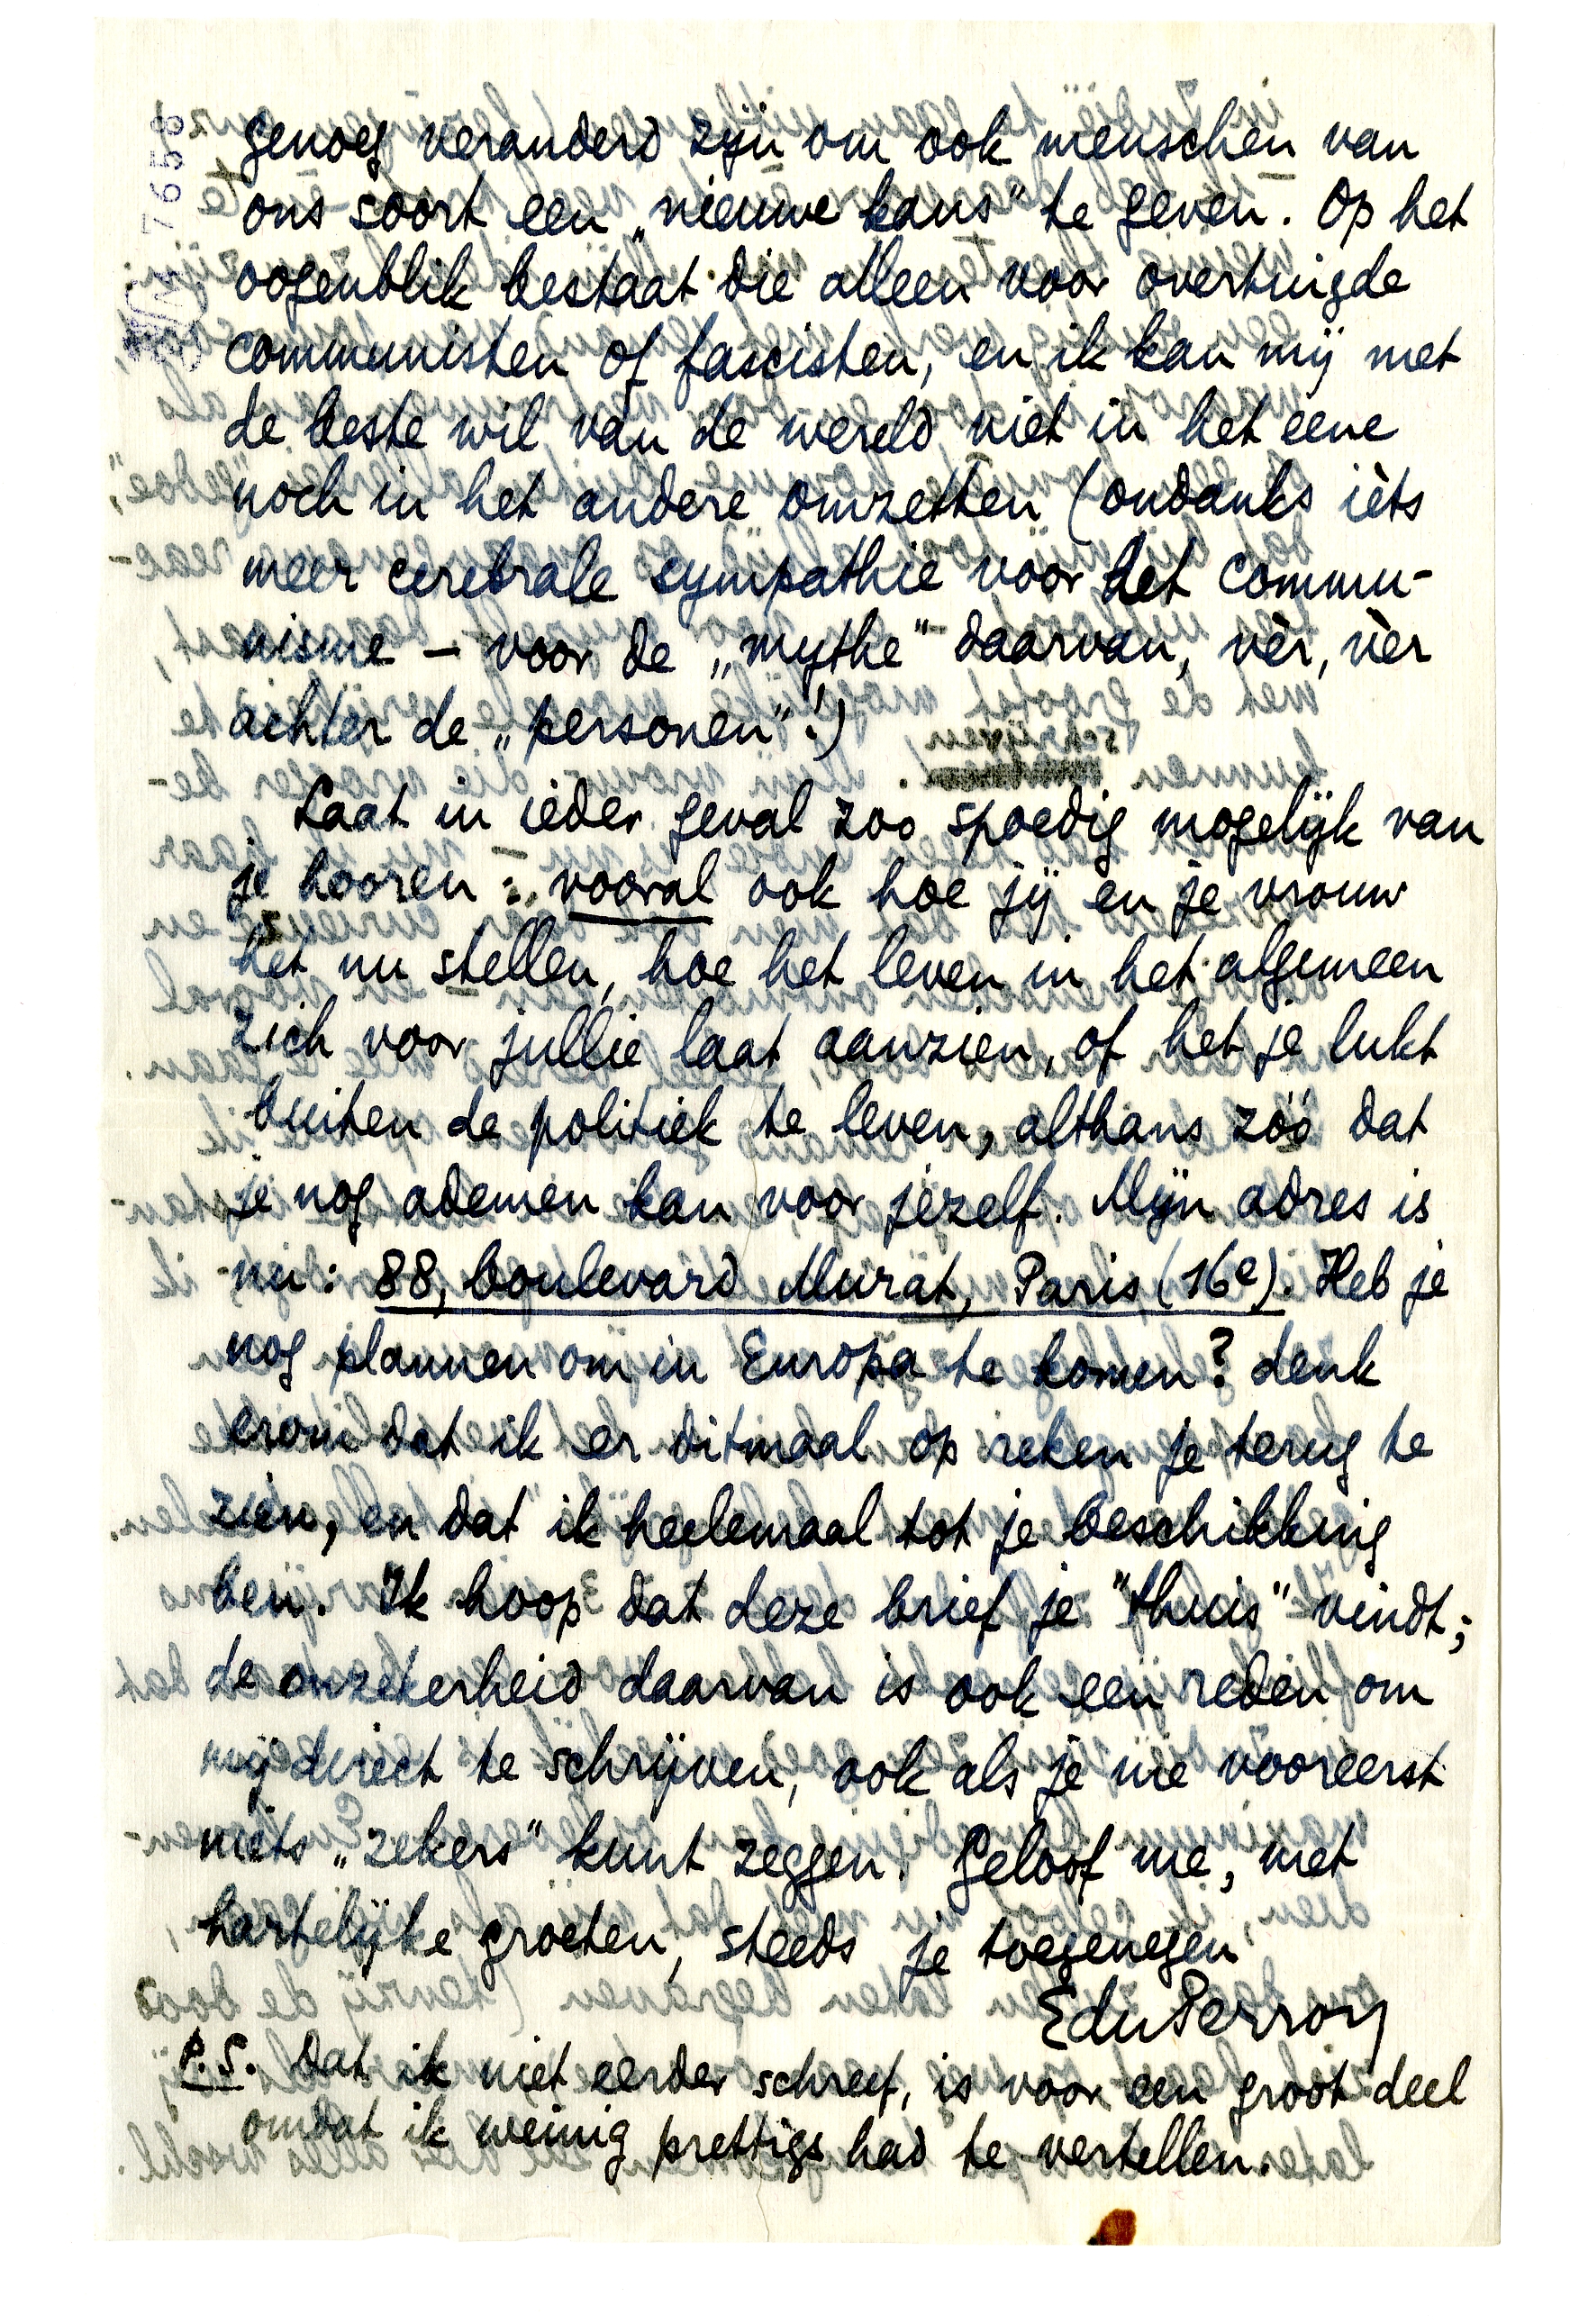 genoeg veranderd zijn om ook menschen van
ons soort een „nieuwe kans" te geven. Op het
oogenblik bestaat die alleen voor overtuigde
communisten of fascisten, en ik kan mij met
de beste wil van de wereld niet in het eene
noch in het andere omzetten (ondanks ièts
meer cerebrale sympathie voor het commu-
nisme – voor de „mythe" daarvan, vèr, vèr
achter de „personen"!)
Laat in ieder geval zoo spoedig mogelijk van
je hooren: vooral ook hoe jij en je vrouw
het nu stellen, hoe het leven in het algemeen
zich voor jullie laat aanzien, of het je lukt
buiten de politiek te leven, althans zóó dat
je nog ademen kan voor jezelf. Mijn adres is
nu: 88, boulevard Murat, Paris (16e). Heb je
nog plannen om in Europa te komen? denk
erom dat ik er ditmaal op reken je terug te
zien, en dat ik heelemaal tot je beschikking
ben. Ik hoop dat deze brief je "thuis" vindt;
de onzekerheid daarvan is ook een reden om
mij direct te schrijven, ook als je me vooreerst
niets „zekers" kunt zeggen. Geloof me, met
hartelijke groeten, steeds je toegenegen
EduPerron
P.S. Dat ik niet eerder schreef, is voor een groot deel
omdat ik weinig prettigs had te vertellen.
7658